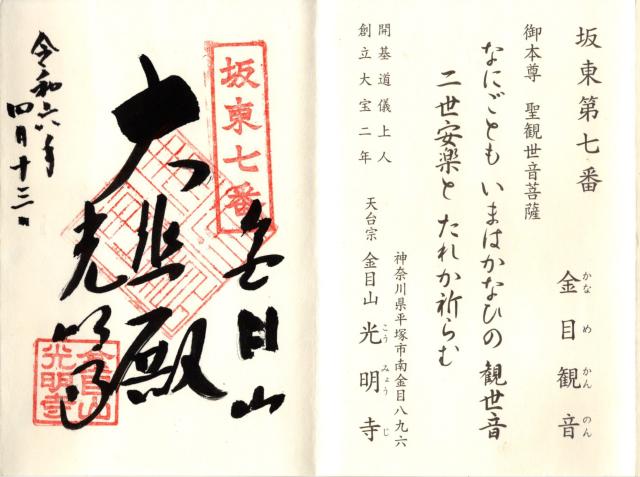 坂東第七番
金目観音
かなめかんのん
御本尊 聖観世音菩薩
なにごとも いまはかなひの 観世音
二世安楽と たれか祈らむ
開基道儀上人
創立大宝二年
神奈川県平塚市南金目八九六
天台宗 金目山 光明寺
こうみょうじ
坂東七番
金目山
大悲殿
光明寺
令和六年
四月十三日
金目山
光明寺